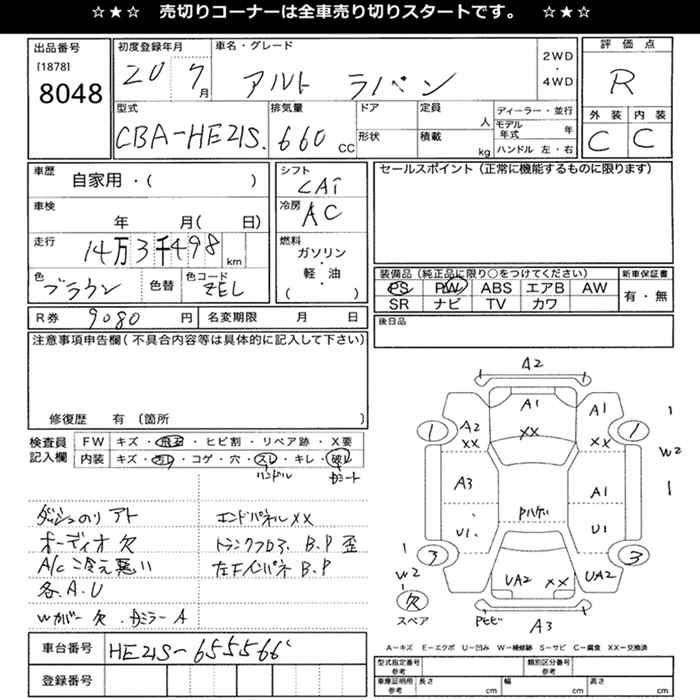 ☆★☆ 売切りコーナーは全車売り切りスタートです。 ☆★☆
出品番号 初度登録年月 車名・グレード 2WD・4WD 評価点
[1878]
8048 20 7月 アルト ラパン R
型式 排気量 ドア 定員 人 ディーラー・並行 外装 内装
CBA-HE21S. 660 CC 形状 積載 kg モデル年式 年 C C
ハンドル 左・右
車歴 自家用・( ) シフト CAT セールスポイント(正常に機能するものに限ります)
車検 年 月( 日) 冷房 AC
走行 14万3千498 km 燃料 ガソリン・軽・油 ( )
色 ブラウン 色替 色コード ZEL
装備品(純正品に限り○をつけてください) 新車保証書
PS PW ABS エアB AW 有・無
SR ナビ TV カワ
R券 9080 円 名変期限 月 日 後日品
注意事項申告欄(不具合内容等は具体的に記入して下さい)
修復歴 有(箇所 )
検査員記入欄 FW キズ・飛石・ヒビ割・リペア跡・X要
内装 キズ・汚レ・コゲ・穴・スレ・キレ・破レ
ハンドル シート
ダッシュのリアト エンドパネルXX
オーディオ欠 トランクフロア B.P歪
A/C冷え悪い 左Fインパネ B.P
各A.U
Wカバー欠 ドミラーA
車台番号 HE21S-655566
登録番号
A2
A1 XX
A1 XX
A2 XX
1
1
1
W2
1
A3
A1
Pハガレ
U1.
U1
3
3
1
W2
欠
スペア
UA2 XX
UA2
A3
A-キズ E-エクボ U-凹み W-補修跡 S-サビ C-腐食 XX-交換済
型式指定番号 参考 類別区分番号 参考
車庫証明用 参考 長さ cm 幅 cm 高さ cm